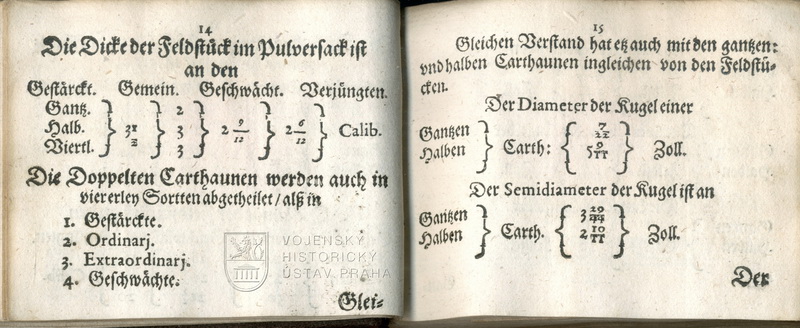 14
Die Dicke der Feldstück im Pulversack ist
an den
Gestärckt. Gemein. Geschwächt. Verjüngten.
Gantz. } } 2 } }
Halb. } 3 1/2 } 3 } 2 9/12 } 2 6/12 } Calib.
Viertl. } } 3 } }
Die Doppelten Carthaunen werden auch in
viererley Sortten abgetheilet / alß in
1. Gestärckte.
2. Ordinarj.
3. Extraordinarj.
4. Geschwächte.
Glei-
VOJENSKÝ
HISTORICKÝ
ÚSTAV PRAHA
15
Gleichen Verstand hat es auch mit den gantzen:
vnd halben Carthaunen ingleichen von den Feldstü-
cken.
Der Diameter der Kugel einer
Gantzen } Carth: { 7 } Zoll.
Halben } { 5 9/11 }
Der Semidiameter der Kugel ist an
Gantzen } Carth. { 3 } Zoll.
Halben } { 2 10/11 }
Der